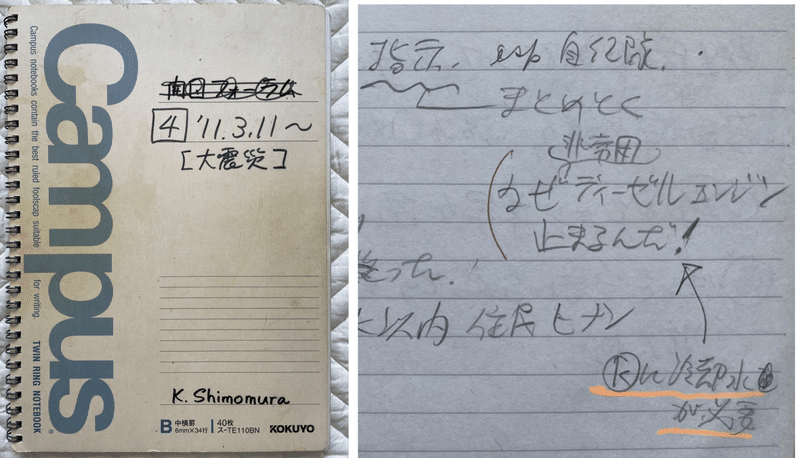 Campus
Campus notebooks contain the best ruled foolscap suitable for writing.
TWIN RING NOTEBOOK
4 '11.3.11～
[大震災]
K. Shimomura
B 中横罫 6mm×34行
40枚 ス-TE110BN
KOKUYO
指示. esp 自衛隊.
まとめとく
非常用
なぜディーゼルエンジン
止まるんだ!
以内 住民ヒナン
に冷却水
が必要